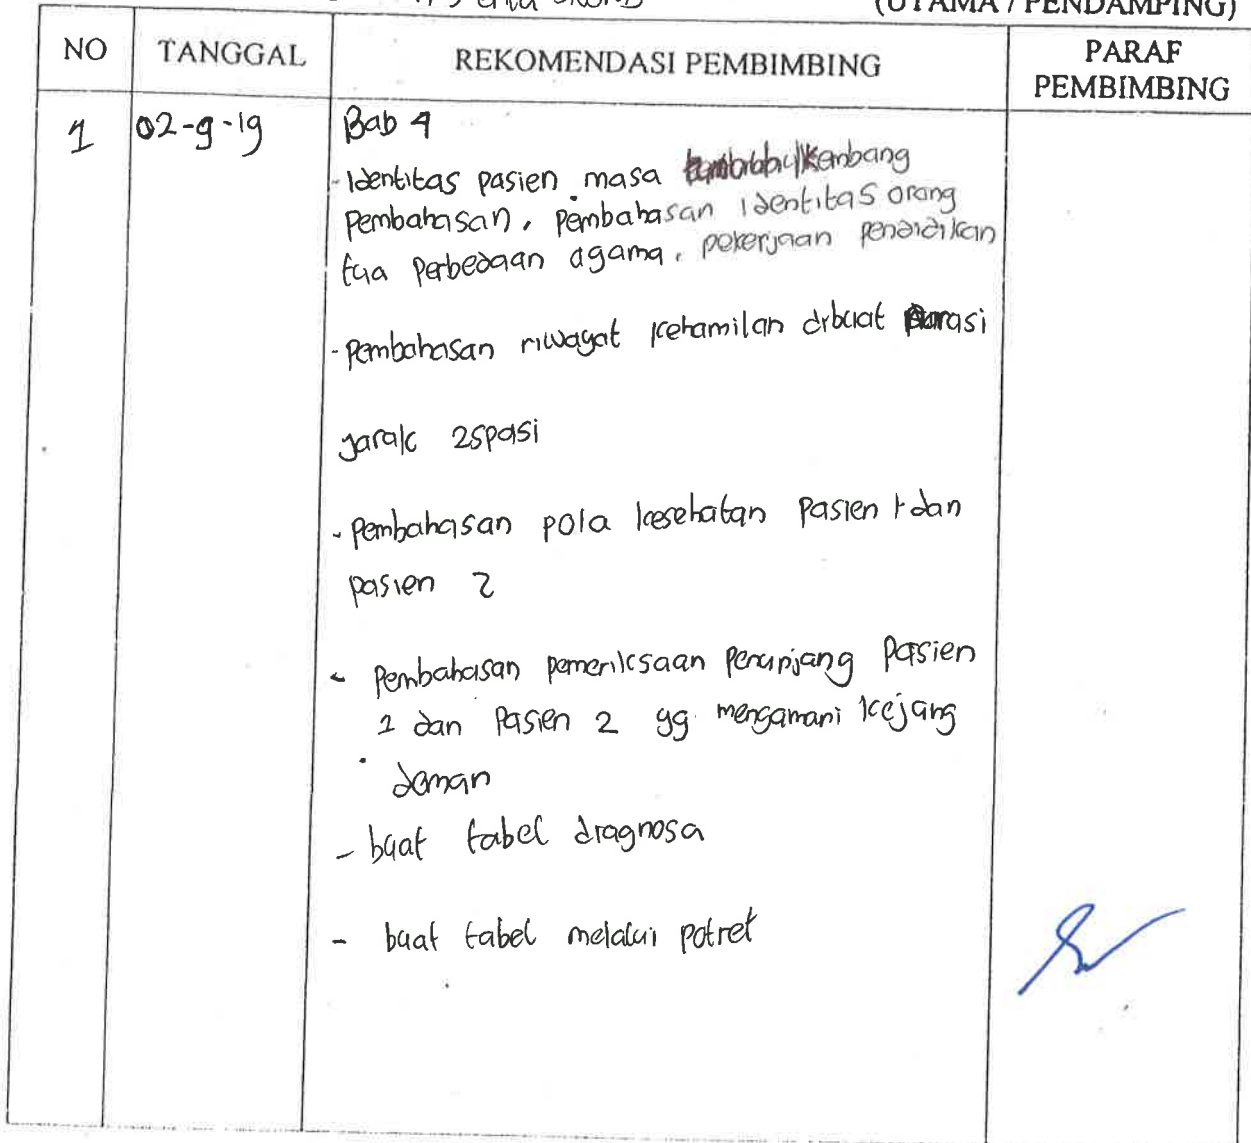 (UTAMA / PENDAMPING)
NO TANGGAL REKOMENDASI PEMBIMBING PARAF PEMBIMBING
1 02-9-19 Bab 4
- Identitas pasien masa kembang
pembahasan, pembahasan identitas orang
tua perbedaan agama, pekerjaan pendidikan
- pembahasan riwayat kehamilan dibuat narasi
jarak 2spasi
- pembahasan pola kesehatan pasien 1 dan
pasien 2
- pembahasan pemeriksaan penunjang pasien
1 dan pasien 2 yg mengamani kejang
deman
- buat tabel diagnosa
- buat tabel melalui potret